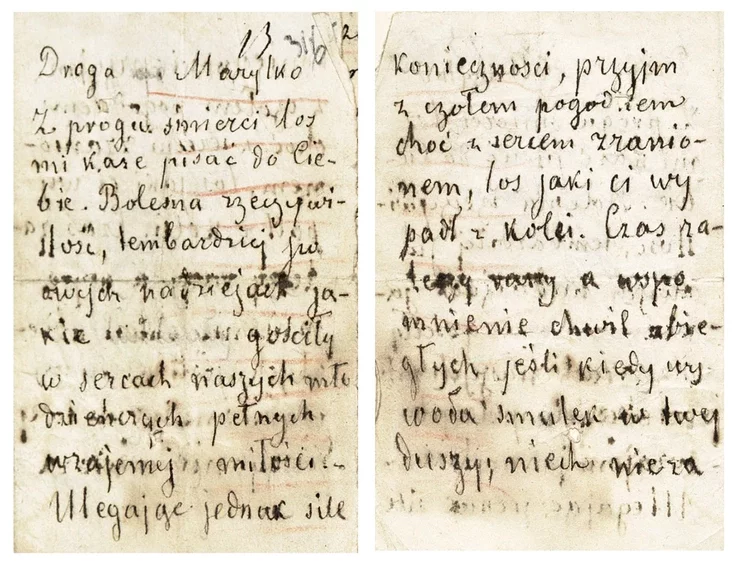 13
316
Droga Marylko
Z progu śmierci los
mi każe pisać do Cie-
bie. Bolesna rzeczywi-
stość, tembardziej po
owych nadziejach ja-
kie gościły
w sercach naszych mło
dzieńczych pełnych
wzajemnej miłości.
Ulegając jednak sile
konieczności, przyjm
z czołem pogodnem
choć z sercem zranio-
nem, los jaki ci wy
padł z kolei. Czas za-
leczy rany a wspo
mnienie chwil ubie-
głych jeśli kiedy wy
woła smutek w twej
duszy, niech nie za